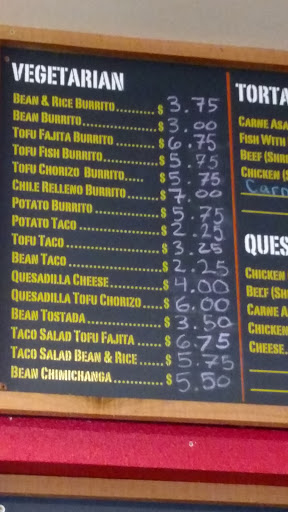 VEGETARIAN
BEAN & RICE BURRITO......... $ 3.75
BEAN BURRITO................$ 3.00
TOFU FAJITA BURRITO .......$ 6.75
TOFU FISH BURRITO..........$ 5.75
TOFU CHORIZO BURRITO.....$ 5.75
CHILE RELLENO BURRITO......$ 7.00
POTATO BURRITO .............$ 5.75
POTATO TACO .................$ 2.25
TOFU TACO.....................$ 3.25
BEAN TACO.....................$ 2.25
QUESADILLA CHEESE...........$ 4.00
QUESADILLA TOFU CHORIZO....$ 6.00
BEAN TOSTADA.................$ 3.50
TACO SALAD TOFU FAJITA .....$ 6.75
TACO SALAD BEAN & RICE .....$ 5.75
BEAN CHIMICHANGA............$ 5.50
TORTA
CARNE ASA
FISH WITH
BEEF (SHR
CHICKEN (S
Carn
QUES
CHICKEN
BEEF (SH
CARNE A
CHICKEN
CHEESE..